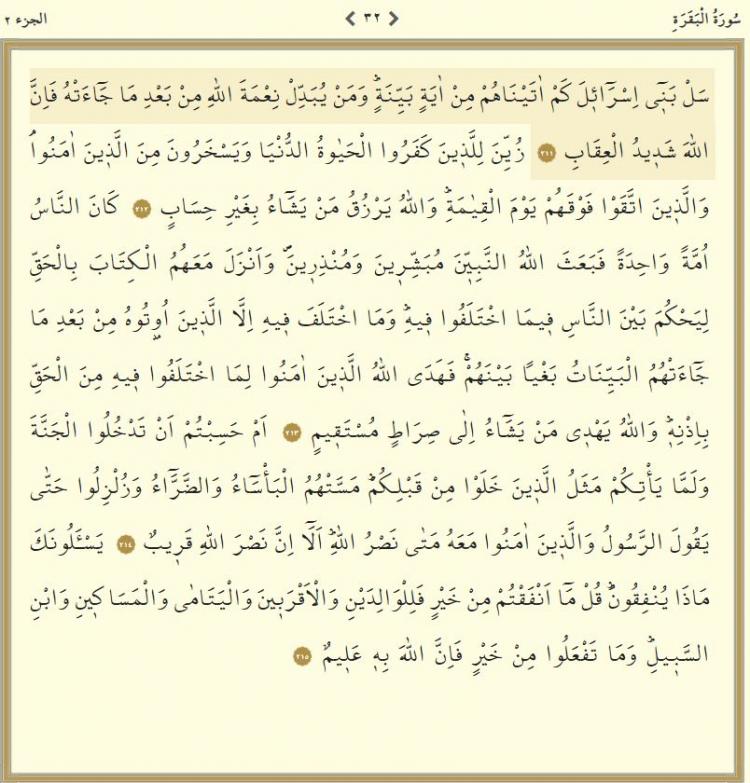 سُورَةُ الْبَقَرَةِ ٣٢ الجزء ٢
سَلْ بَنٖٓي اِسْرَٓائٖلَ كَمْ اٰتَيْنَاهُمْ مِنْ اٰيَةٍ بَيِّنَةٍؕ وَمَنْ يُبَدِّلْ نِعْمَةَ اللّٰهِ مِنْ بَعْدِ مَا جَٓاءَتْهُ فَاِنَّ
اللّٰهَ شَدٖيدُ الْعِقَابِ ٢١١ زُيِّنَ لِلَّذٖينَ كَفَرُوا الْحَيٰوةُ الدُّنْيَا وَيَسْخَرُونَ مِنَ الَّذٖينَ اٰمَنُواۘ
وَالَّذٖينَ اتَّقَوْا فَوْقَهُمْ يَوْمَ الْقِيٰمَةِؕ وَاللّٰهُ يَرْزُقُ مَنْ يَشَٓاءُ بِغَيْرِ حِسَابٍ ٢١٢ كَانَ النَّاسُ
اُمَّةً وَاحِدَةً فَبَعَثَ اللّٰهُ النَّبِيّٖنَ مُبَشِّرٖينَ وَمُنْذِرٖينَࣕ وَاَنْزَلَ مَعَهُمُ الْكِتَابَ بِالْحَقِّ
لِيَحْكُمَ بَيْنَ النَّاسِ فٖيمَا اخْتَلَفُوا فٖيهِؕ وَمَا اخْتَلَفَ فٖيهِ اِلَّا الَّذٖينَ اُو۫تُوهُ مِنْ بَعْدِ مَا
جَٓاءَتْهُمُ الْبَيِّنَاتُ بَغْياً بَيْنَهُمْۚ فَهَدَى اللّٰهُ الَّذٖينَ اٰمَنُوا لِمَا اخْتَلَفُوا فٖيهِ مِنَ الْحَقِّ
بِاِذْنِهٖؕ وَاللّٰهُ يَهْدٖي مَنْ يَشَٓاءُ اِلٰى صِرَاطٍ مُسْتَقٖيمٍ ٢١٣ اَمْ حَسِبْتُمْ اَنْ تَدْخُلُوا الْجَنَّةَ
وَلَمَّا يَأْتِكُمْ مَثَلُ الَّذٖينَ خَلَوْا مِنْ قَبْلِكُمْؕ مَسَّتْهُمُ الْبَأْسَٓاءُ وَالضَّرَّٓاءُ وَزُلْزِلُوا حَتّٰى
يَقُولَ الرَّسُولُ وَالَّذٖينَ اٰمَنُوا مَعَهُ مَتٰى نَصْرُ اللّٰهِؕ اَلَٓا اِنَّ نَصْرَ اللّٰهِ قَرٖيبٌ ٢١٤ يَسْـَٔلُونَكَ
مَاذَا يُنْفِقُونَؕ قُلْ مَٓا اَنْفَقْتُمْ مِنْ خَيْرٍ فَلِلْوَالِدَيْنِ وَالْاَقْرَبٖينَ وَالْيَتَامٰى وَالْمَسَاكٖينِ وَابْنِ
السَّبٖيلِؕ وَمَا تَفْعَلُوا مِنْ خَيْرٍ فَاِنَّ اللّٰهَ بِهٖ عَلٖيمٌ ٢١٥